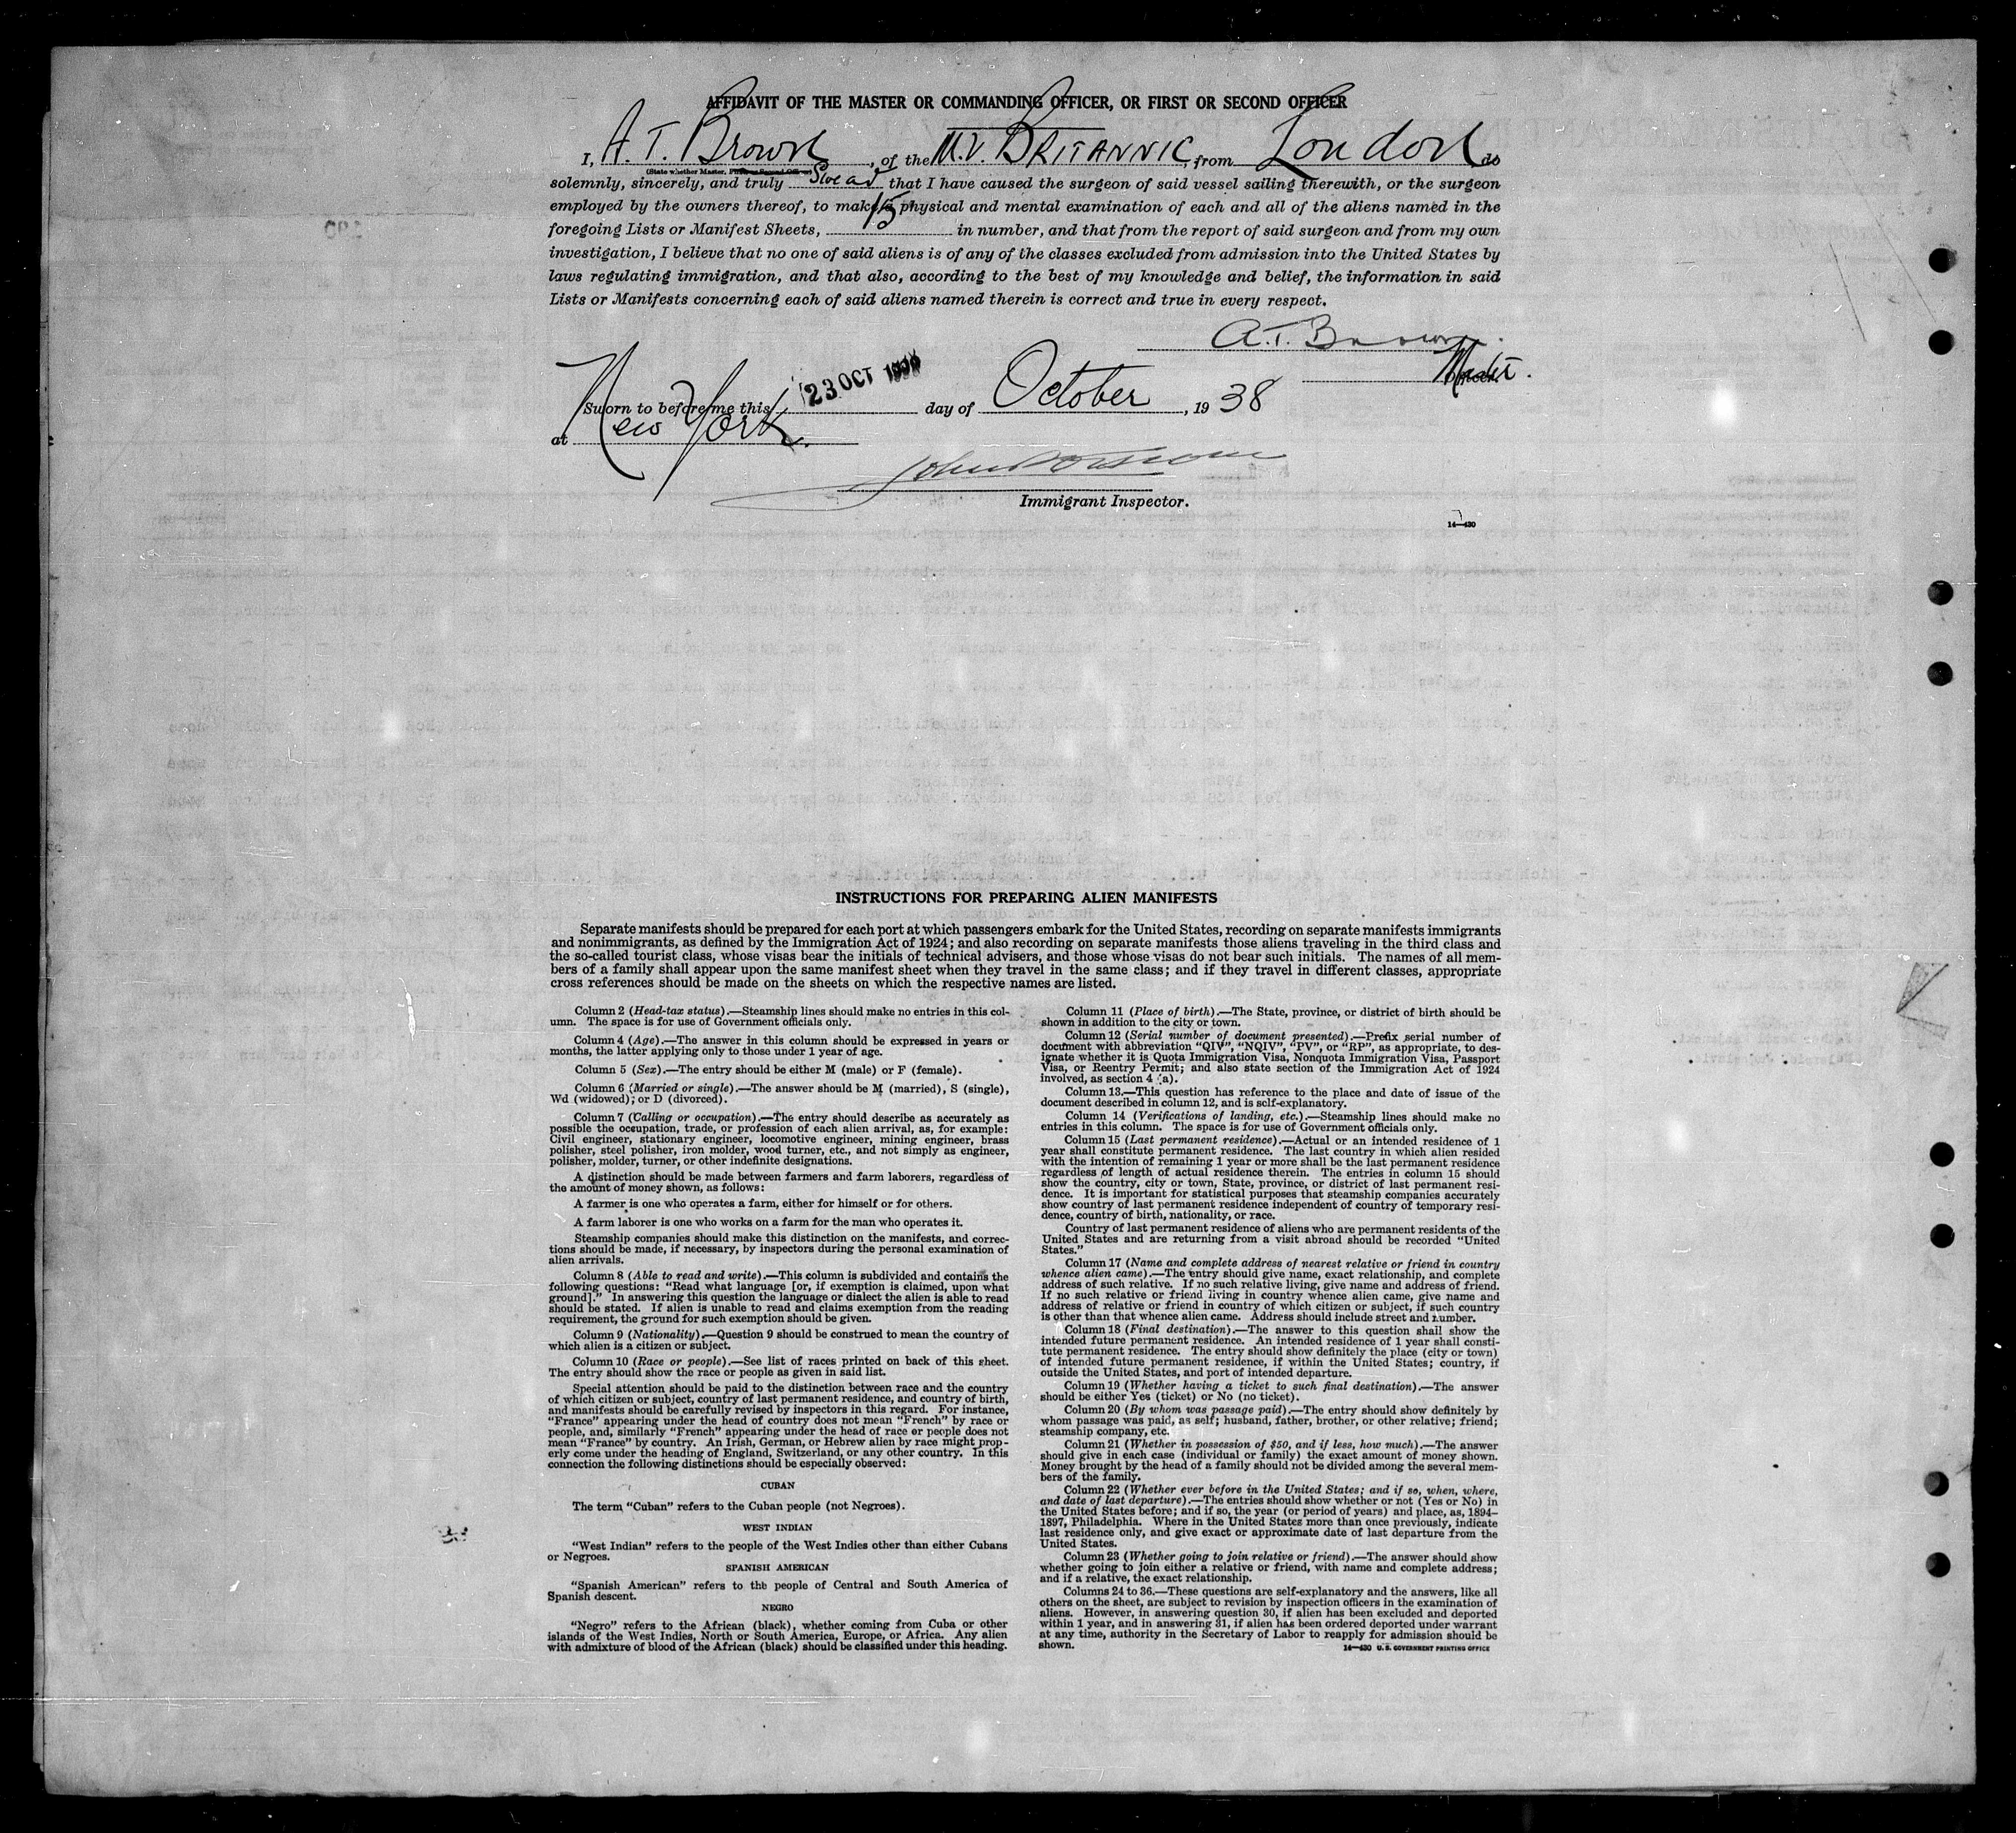 AFFIDAVIT OF THE MASTER OR COMMANDING OFFICER, OR FIRST OR SECOND OFFICER
I, A. T. Brown, of the M.V. BRITANNIC, from London do
(State whether Master, First or Second Officer)
solemnly, sincerely, and truly Swear that I have caused the surgeon of said vessel sailing therewith, or the surgeon
employed by the owners thereof, to make a physical and mental examination of each and all of the aliens named in the
foregoing Lists or Manifest Sheets, 15 in number, and that from the report of said surgeon and from my own
investigation, I believe that no one of said aliens is of any of the classes excluded from admission into the United States by
laws regulating immigration, and that also, according to the best of my knowledge and belief, the information in said
Lists or Manifests concerning each of said aliens named therein is correct and true in every respect.
A.T. Brown.
Master.
Officer.
Sworn to before me this 23 OCT 1938 day of October, 19 38
at New York.
Immigrant Inspector.
14—430
INSTRUCTIONS FOR PREPARING ALIEN MANIFESTS
Separate manifests should be prepared for each port at which passengers embark for the United States, recording on separate manifests immigrants
and nonimmigrants, as defined by the Immigration Act of 1924; and also recording on separate manifests those aliens traveling in the third class and
the so-called tourist class, whose visas bear the initials of technical advisers, and those whose visas do not bear such initials. The names of all mem-
bers of a family shall appear upon the same manifest sheet when they travel in the same class; and if they travel in different classes, appropriate
cross references should be made on the sheets on which the respective names are listed.
Column 2 (Head-tax status).—Steamship lines should make no entries in this col-
umn. The space is for use of Government officials only.
Column 4 (Age).—The answer in this column should be expressed in years or
months, the latter applying only to those under 1 year of age.
Column 5 (Sex).—The entry should be either M (male) or F (female).
Column 6 (Married or single).—The answer should be M (married), S (single),
Wd (widowed); or D (divorced).
Column 7 (Calling or occupation).—The entry should describe as accurately as
possible the occupation, trade, or profession of each alien arrival, as, for example:
Civil engineer, stationary engineer, locomotive engineer, mining engineer, brass
polisher, steel polisher, iron molder, wood turner, etc., and not simply as engineer,
polisher, molder, turner, or other indefinite designations.
A distinction should be made between farmers and farm laborers, regardless of
the amount of money shown, as follows:
A farmer is one who operates a farm, either for himself or for others.
A farm laborer is one who works on a farm for the man who operates it.
Steamship companies should make this distinction on the manifests, and correc-
tions should be made, if necessary, by inspectors during the personal examination of
alien arrivals.
Column 8 (Able to read and write).—This column is subdivided and contains the
following questions: "Read what language [or, if exemption is claimed, upon what
ground]." In answering this question the language or dialect the alien is able to read
should be stated. If alien is unable to read and claims exemption from the reading
requirement, the ground for such exemption should be given.
Column 9 (Nationality).—Question 9 should be construed to mean the country of
which alien is a citizen or subject.
Column 10 (Race or people).—See list of races printed on back of this sheet.
The entry should show the race or people as given in said list.
Special attention should be paid to the distinction between race and the country
of which citizen or subject, country of last permanent residence, and country of birth,
and manifests should be carefully revised by inspectors in this regard. For instance,
"France" appearing under the head of country does not mean "French" by race or
people, and, similarly "French" appearing under the head of race or people does not
mean "France" by country. An Irish, German, or Hebrew alien by race might prop-
erly come under the heading of England, Switzerland, or any other country. In this
connection the following distinctions should be especially observed:
CUBAN
The term "Cuban" refers to the Cuban people (not Negroes).
WEST INDIAN
"West Indian" refers to the people of the West Indies other than either Cubans
or Negroes.
SPANISH AMERICAN
"Spanish American" refers to the people of Central and South America of
Spanish descent.
NEGRO
"Negro" refers to the African (black), whether coming from Cuba or other
islands of the West Indies, North or South America, Europe, or Africa. Any alien
with admixture of blood of the African (black) should be classified under this heading.
Column 11 (Place of birth).—The State, province, or district of birth should be
shown in addition to the city or town.
Column 12 (Serial number of document presented).—Prefix serial number of
document with abbreviation "QIV", "NQIV", "PV", or "RP", as appropriate, to des-
ignate whether it is Quota Immigration Visa, Nonquota Immigration Visa, Passport
Visa, or Reentry Permit; and also state section of the Immigration Act of 1924
involved, as section 4 (a).
Column 13.—This question has reference to the place and date of issue of the
document described in column 12, and is self-explanatory.
Column 14 (Verifications of landing, etc.).—Steamship lines should make no
entries in this column. The space is for use of Government officials only.
Column 15 (Last permanent residence).—Actual or an intended residence of 1
year shall constitute permanent residence. The last country in which alien resided
with the intention of remaining 1 year or more shall be the last permanent residence
regardless of length of actual residence therein. The entries in column 15 should
show the country, city or town, State, province, or district of last permanent resi-
dence. It is important for statistical purposes that steamship companies accurately
show country of last permanent residence independent of country of temporary resi-
dence, country of birth, nationality, or race.
Country of last permanent residence of aliens who are permanent residents of the
United States and are returning from a visit abroad should be recorded "United
States."
Column 17 (Name and complete address of nearest relative or friend in country
whence alien came).—The entry should give name, exact relationship, and complete
address of such relative. If no such relative living, give name and address of friend.
If no such relative or friend living in country whence alien came, give name and
address of relative or friend in country of which citizen or subject, if such country
is other than that whence alien came. Address should include street and number.
Column 18 (Final destination).—The answer to this question shall show the
intended future permanent residence. An intended residence of 1 year shall consti-
tute permanent residence. The entry should show definitely the place (city or town)
of intended future permanent residence, if within the United States; country, if
outside the United States, and port of intended departure.
Column 19 (Whether having a ticket to such final destination).—The answer
should be either Yes (ticket) or No (no ticket).
Column 20 (By whom was passage paid).—The entry should show definitely by
whom passage was paid, as self; husband, father, brother, or other relative; friend;
steamship company, etc.
Column 21 (Whether in possession of $50, and if less, how much).—The answer
should give in each case (individual or family) the exact amount of money shown.
Money brought by the head of a family should not be divided among the several mem-
bers of the family.
Column 22 (Whether ever before in the United States; and if so, when, where,
and date of last departure).—The entries should show whether or not (Yes or No) in
the United States before; and if so, the year (or period of years) and place, as, 1894–
1897, Philadelphia. Where in the United States more than once previously, indicate
last residence only, and give exact or approximate date of last departure from the
United States.
Column 23 (Whether going to join relative or friend).—The answer should show
whether going to join either a relative or friend, with name and complete address;
and if a relative, the exact relationship.
Columns 24 to 36.—These questions are self-explanatory and the answers, like all
others on the sheet, are subject to revision by inspection officers in the examination of
aliens. However, in answering question 30, if alien has been excluded and deported
within 1 year, and in answering 31, if alien has been ordered deported under warrant
at any time, authority in the Secretary of Labor to reapply for admission should be
shown.
14—430 U. S. GOVERNMENT PRINTING OFFICE